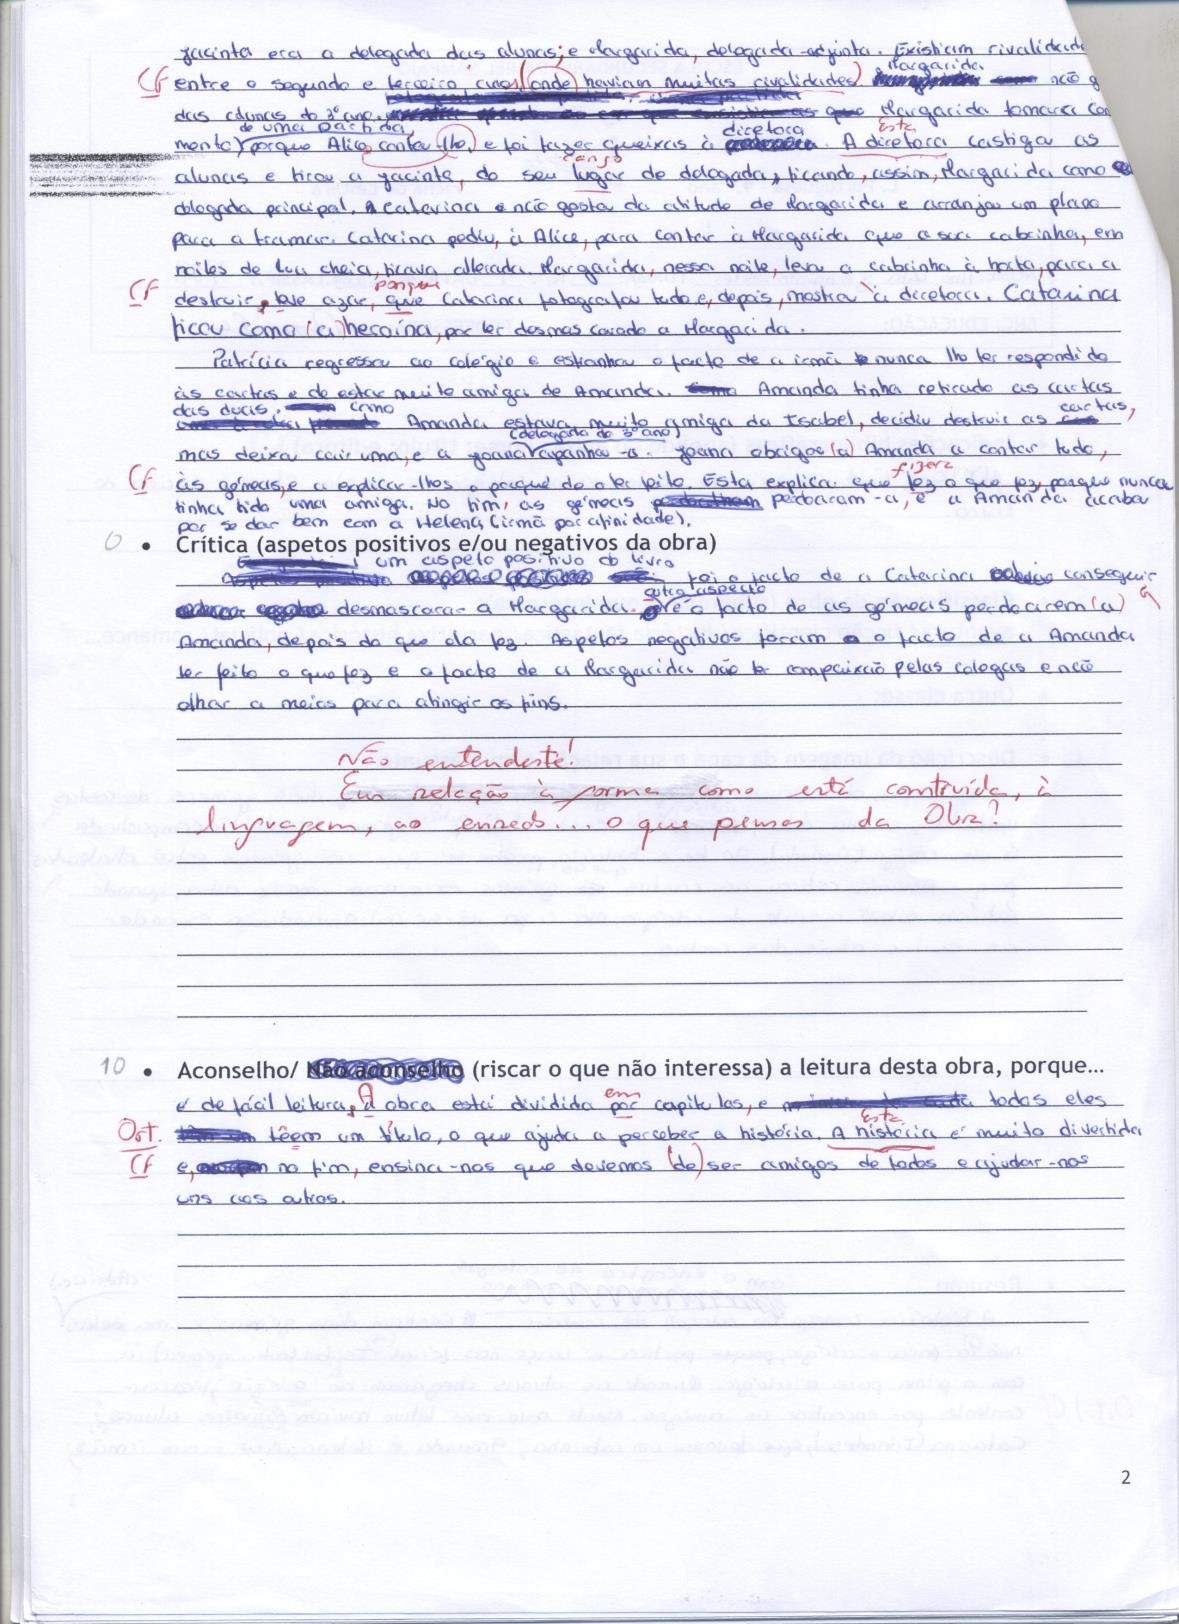 Jacinta era a delegada das alunas; e Margarida, delegada-adjunta. Existiam rivalidade
Cf entre o segundo e terceiro anos (onde) haviam muitas rivalidades) Margarida não g
das alunas do 3º ano. Margarida tomara con
de uma partida,
mento) porque Alice contou-lho, e foi fazer queixas à diretora. A diretora Esta castiga as
alunas e tirou a Jacinta, do seu lugar cargo de delegada, ficando, assim, Margarida como
delegada principal. A Catarina não gosta da atitude de Margarida e arranjou um plano
para a tramar. Catarina pediu, à Alice, para contar à Margarida que a sua cabrinha, em
noites de lua cheia, ficava alterada. Margarida, nessa noite, leva a cabrinha à horta, para a
Cf destruir, teve azar, que porque Catarina fotografou tudo e, depois, mostra à diretora. Catarina
ficou como (a) heroína, por ter desmascarado a Margarida.
Patrícia regressa ao colégio e estranhou o facto de a irmã nunca lhe ter respondido
às cartas e de estar muito amiga de Amanda. Amanda tinha retirado as cartas
das duas. como Amanda estava muito amiga da Isabel, decidiu destruir as cartas,
(delegada do 3º ano)
mas deixa cair uma, e a Joana apanha-a. Joana obrigou (a) Amanda a contar tudo,
Cf às gémeas, e a explicar-lhes o porquê do o ter feito. Esta explica que fez fizera o que fez, porque nunca
tinha tido uma amiga. No fim, as gémeas perdoaram-a, e a Amanda acabou
por se dar bem com a Helena (irmã por afinidade).
0 • Crítica (aspetos positivos e/ou negativos da obra)
um aspeto positivo do livro
foi o facto de a Catarina conseguir
desmascarar a Margarida. outro aspeto é o facto de as gémeas perdoarem (a)
Amanda, depois do que ela fez. Aspetos negativos foram o facto de a Amanda
ter feito o que fez e o facto de a Margarida não ter compaixão pelas colegas e não
olhar a meios para atingir os fins.
Não entendeste!
Em relação à forma como está construída, à
linguagem, ao enredo... o que pensas da Obra?
10 • Aconselho/ Não aconselho (riscar o que não interessa) a leitura desta obra, porque...
é de fácil leitura, A obra está dividida por em capítulos, e todos eles
Ort. têem um título, o que ajuda a perceber a história. A história Esta é muito divertida
Cf e, no fim, ensina-nos que devemos (de) ser amigos de todos e ajudar-nos
uns aos outros.
2